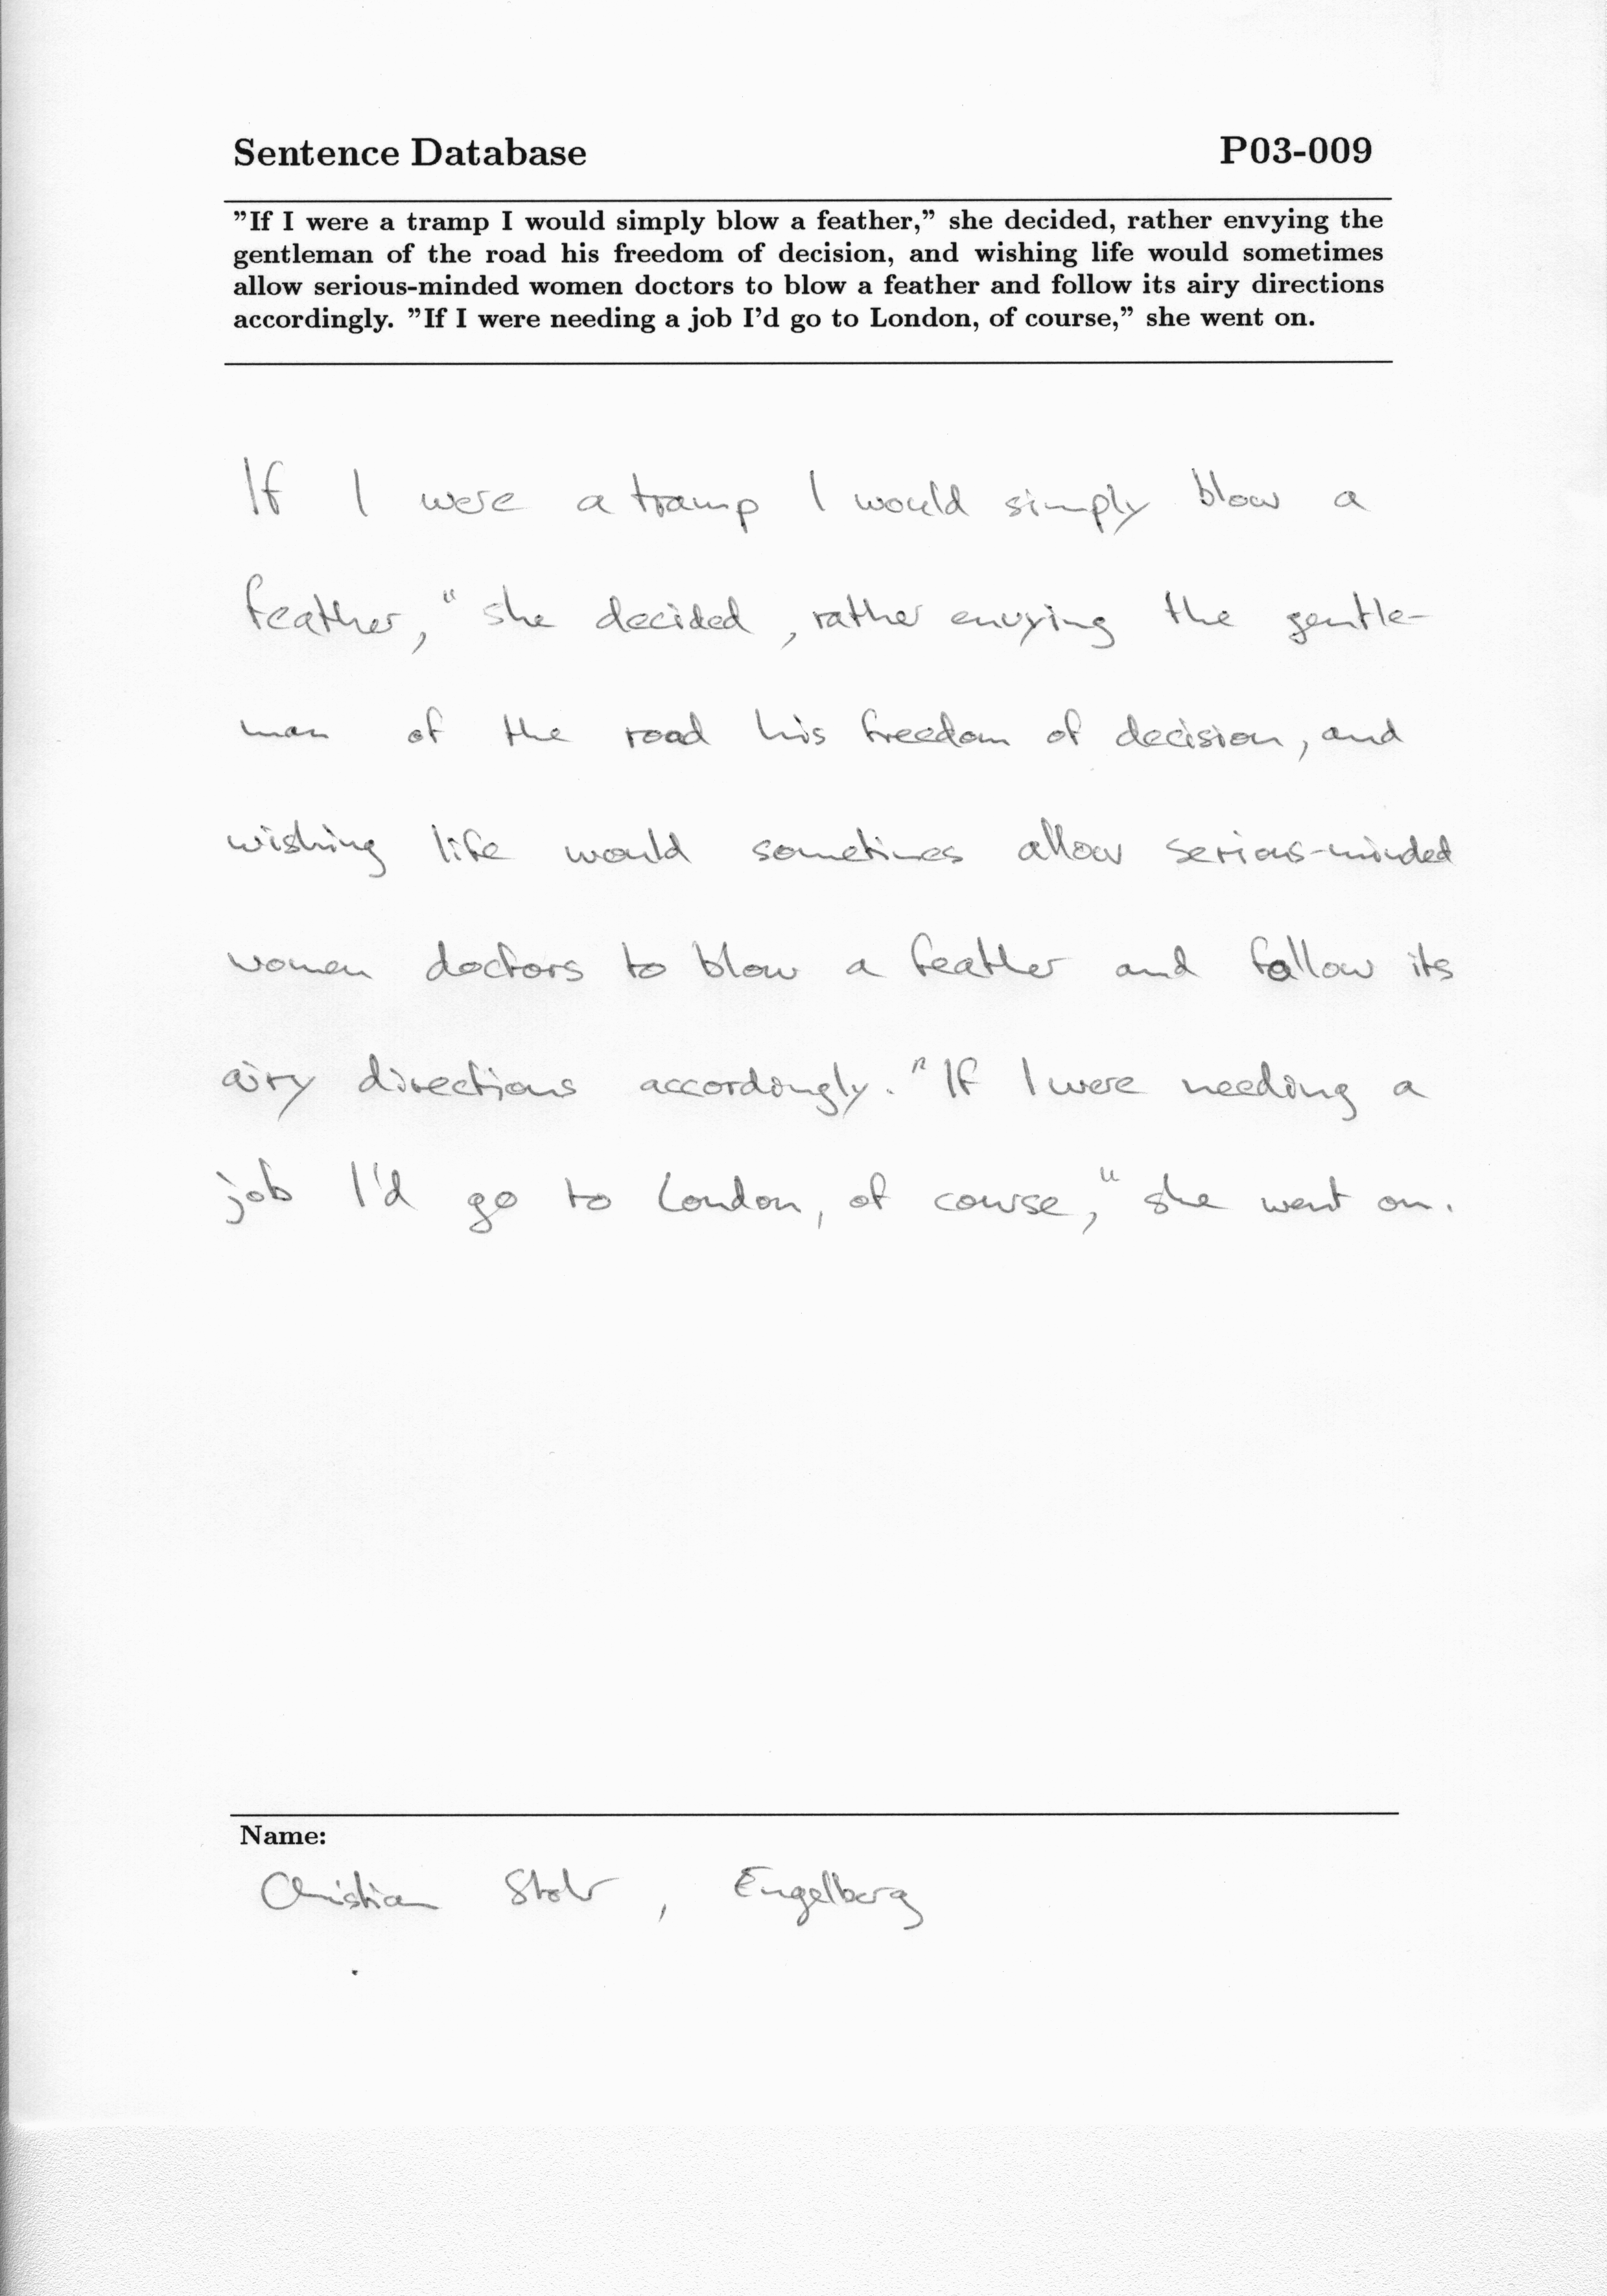 Sentence Database P03-009
"If I were a tramp I would simply blow a feather," she decided, rather envying the
gentleman of the road his freedom of decision, and wishing life would sometimes
allow serious-minded women doctors to blow a feather and follow its airy directions
accordingly. "If I were needing a job I'd go to London, of course," she went on.
If I were a tramp I would simply blow a
feather," she decided, rather envying the gentle-
man of the road his freedom of decision, and
wishing life would sometimes allow serious-minded
women doctors to blow a feather and follow its
airy directions accordingly. "If I were needing a
job I'd go to London, of course," she went on.
Name:
Christian , Engelberg